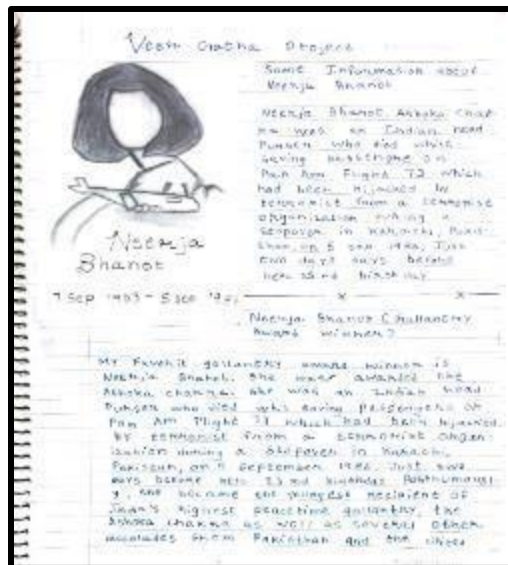 Veer Gatha Project
Some Information about
Neerja Bhanot
Neerja Bhanot, Ashoka Chak
ra was an Indian head
Purser who died while
saving passengers on
Pan Am Flight 73 which
had been hijacked by
terrorist from a terrorist
organization during a
stopover in Karachi, Paki
stan, on 5 Sep 1986, Just
two days before
her 23rd birthday
Neerja
Bhanot
7 Sep 1963 - 5 Sep
x x
Neerja Bhanot (Gallantry
Award winner)
My favorit gallantry award winner is
Neerja Bhanot. She was awarded the
Ashoka chakra. She was an Indian head
Purser who died while saving passengers on
Pan Am Flight 73 which had been hijacked
by terrorist from a terrorist organ-
ization during a stopover in Karachi,
Pakistan, on 5 September 1986. Just two
days before her 23rd birthday. Posthumousl
y, she became the youngest recipient of
highest peacetime gallantry, the
Ashoka chakra as well as several other
accolades from Pakisthan and the United